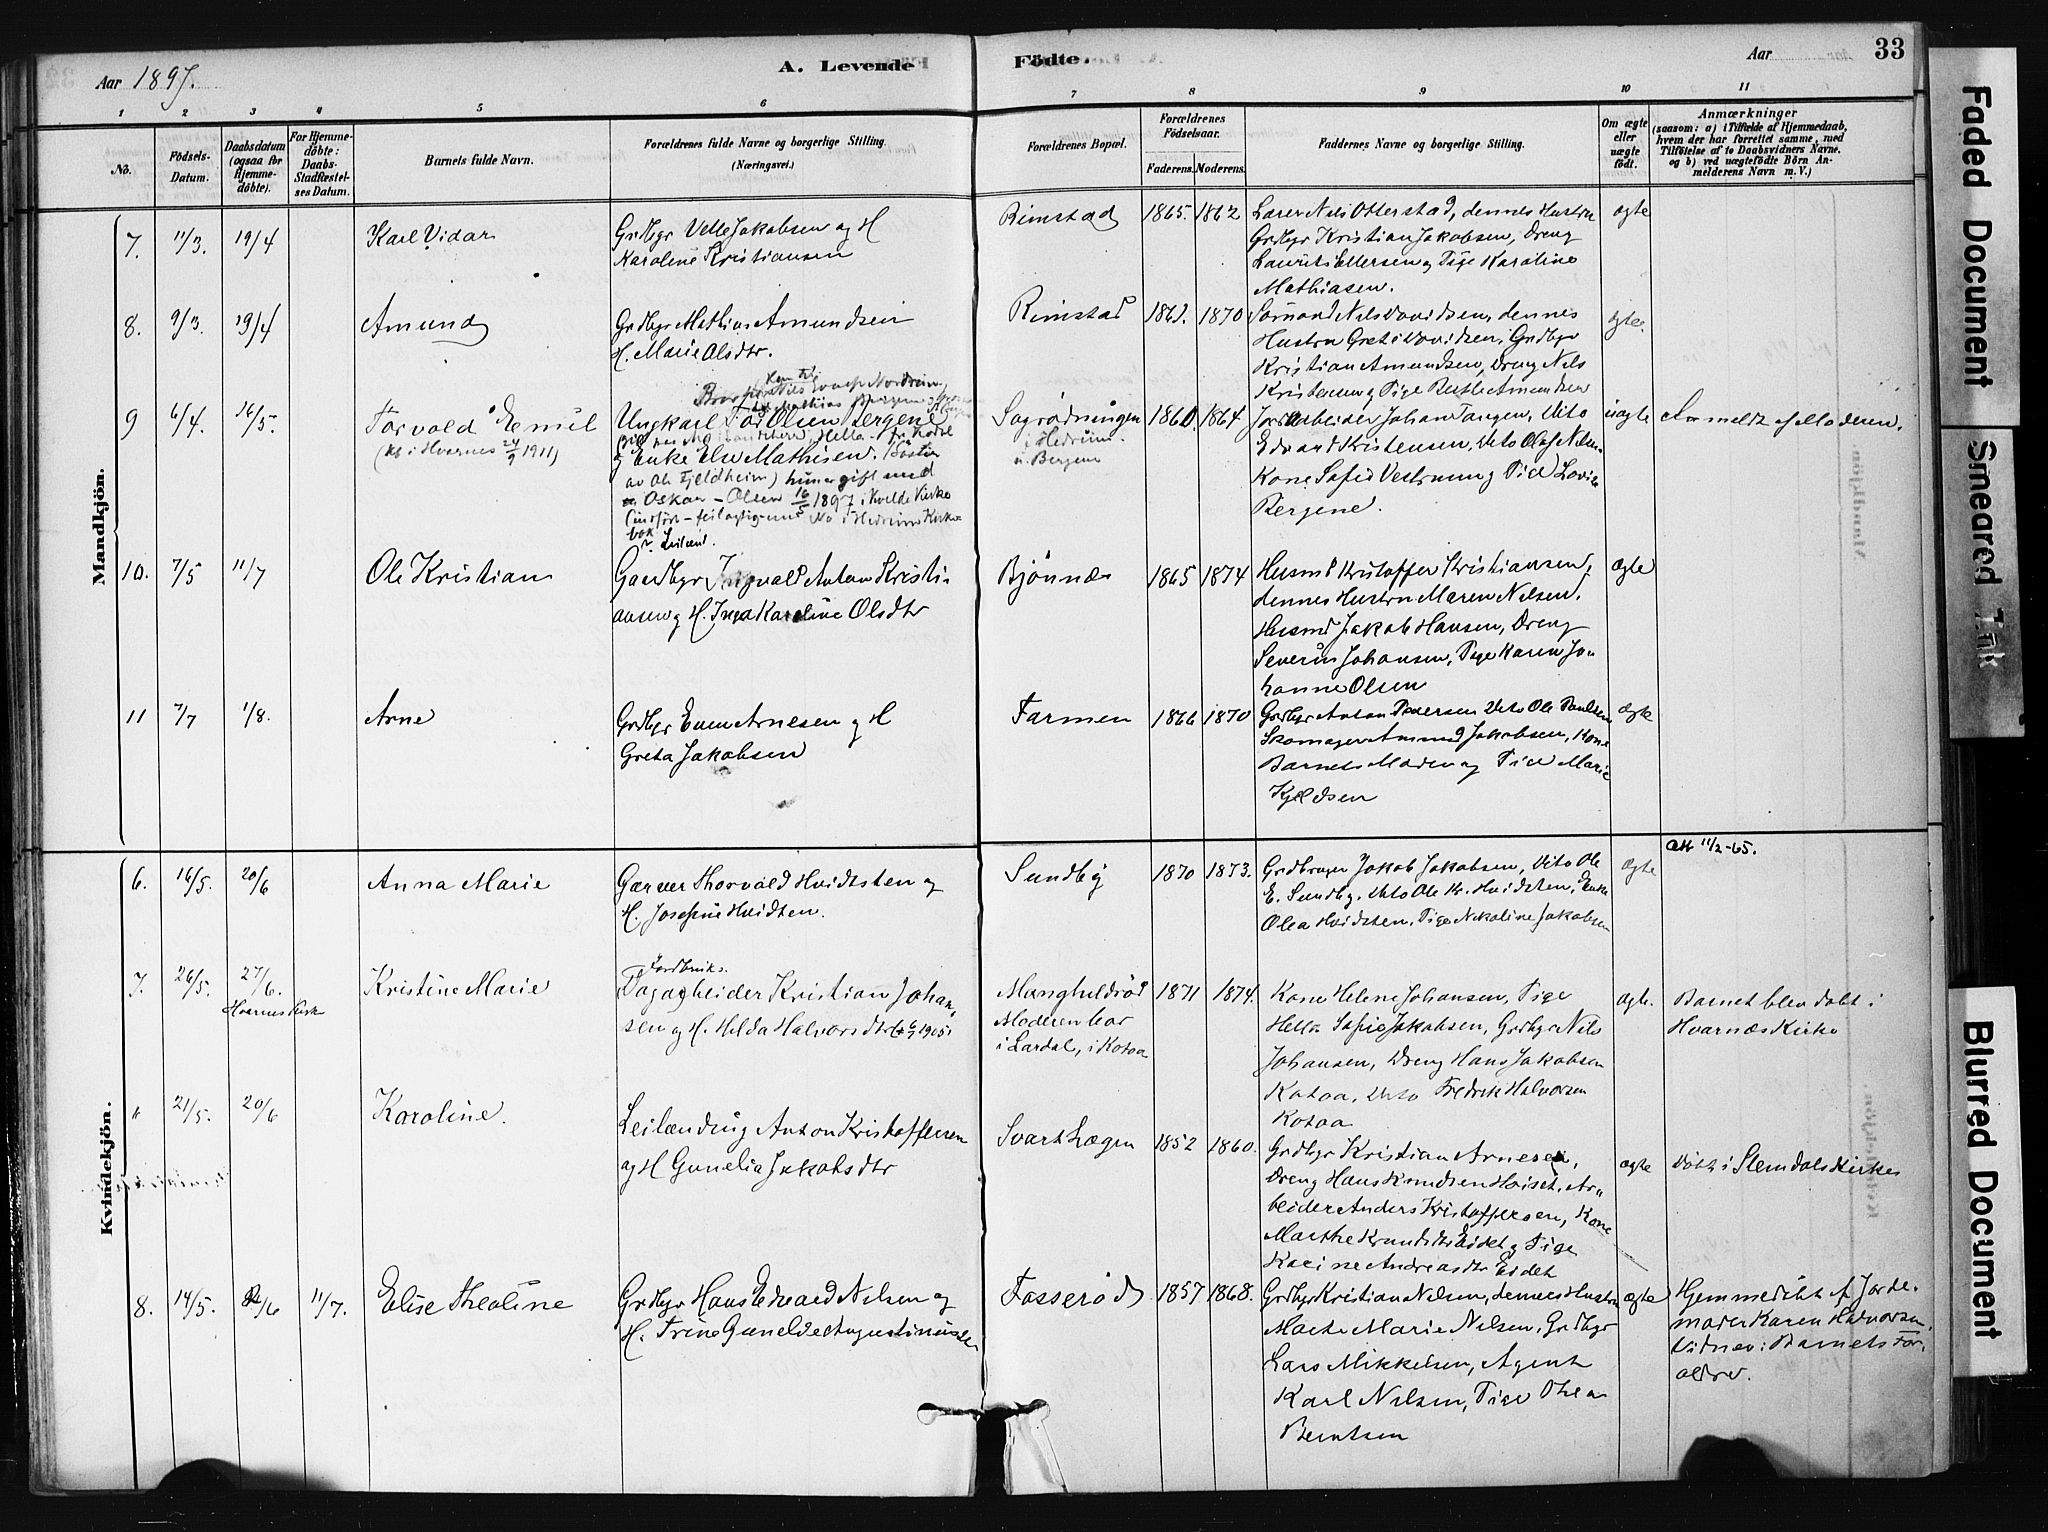 Aar 1897.
A. Levende
Födte.
Aar
33
1 2 3 4 5 6 7 8 9 10 11
No.
Födsels-
Datum.
Daabsdatum
(ogsaa for
Hjemme-
döbte).
For Hjemme-
döbte:
Daabs-
Stadfæstel-
ses Datum.
Barnets fulde Navn.
Forældrenes fulde Navne og borgerlige Stilling.
(Næringsvei.)
Forældrenes Bopæl.
Forældrenes
Födselsaar.
Faderens. Moderens.
Faddernes Navne og borgerlige Stilling.
Om ægte
eller
uægte
födt.
Anmærkninger
(saasom: a) i Tilfælde af Hjemmedaab,
hvem der har forrettet samme, med
Tilföielse af to Daabsvidners Navne.
og b) ved uægtefödte Börn An-
melderens Navn m. V.)
Mandkjön.
7. 11/3. 19/4 Karl Vidar
Grdbgr Velle Jakobsen og H
Karoline Kristiansen
Rimstad 1865. 1862
Lærer Nils Otterstad, dennes Hustru
Grdbgr Kristian Jakobsen, Dreng
Lauritz Ellersen og Pige Karoline
Mathiasen.
ægte
8. 9/3. 19/4 Amund
Grdbgr Mathias Amundsen
H. Marie Olsdtr.
Rimstad 1861. 1870
Sömand Nils Davidsen, dennes
Hustru Grete Davidsen, Grdbgr
Kristian Amundsen, Dreng Nils
Kristensen og Pige Berthe Amundsen
ægte.
9 6/4. 16/5. Torvald Emil
(kf. i Hvarnes 24/9 1911)
Ungkarl Tor Olsen Bergene
og Enke Else Mathisen.
av Ole Fjeldheim) hun er gift med
Oskar Olsen 16/5 1897 i Kvelde Kirke
(indfört feilagtig i Hedrum Kirke
bok
Sagrödningen
i Hedrum.
Bergene
1860. 1864
Jordarbeider Johan Tangen, Dito
Edvard Kristensen, Dito Olaf Nilsen
Kone Sofie Vestrum og Pige Lovise
Bergene.
uægte Anmeldt af Moderen.
10. 7/5 11/7 Ole Kristian
Leilænd.
Gaardbgr Ingvald Anton Kristi-
ansen og H. Inga Karoline Olsdtr
Bjönnes 1865 1874
Husmd Kristoffer Kristiansen,
dennes Hustru Maren Nilsen,
Husmd Jakob Hansen, Dreng
Severin Johansen, Pige Karen Jo-
hanne Olsen
ægte
11 7/7 1/8. Arne
Grdbgr Even Arnesen og H
Greta Jakobsen
Farmen 1866 1870
Grdbgr Anton Pedersen Dito Ole Paulsen
Skomager Amund Jakobsen, Kone
Barnets Moder og Pige Marie
Kjeldsen
ægte
Kvindekjön.
6. 16/5. 20/6 Anna Marie
Garver Thorvald Hvidtsten og
H. Josefine Hvidtsten.
Sundby 1870 1873.
Grdbruger Jakob Jakobsen, Dito Ole
E. Sundby, Dito Ole Kr. Hvidsten, Enke
Olea Hvidsten, Pige Nikoline Jakobsen
ægte
Att 11/2-65.
7. 26/5. 27/6.
Hvarnes Kirke
Kristine Marie
Jordbruks.
Dagarbeider Kristian Johan-
sen og H. Hilda Halvorsdtr
Mangheldröd
Moderen bor
i Lardal, i Kotoa
1871 1874.
Kone Helene Johansen, Pige
Hella Sofie Jakobsen, Grdbgr Nils
Johansen, Dreng Hans Jakobsen
Kotoa, Dito Fredrik Halvorsen
Kotoa
ægte.
Barnet blev döbt i
Hvarnæs Kirke
" 21/5. 20/6 Karoline.
Leilænding Anton Kristoffersen
og H Gunelia Jakobsdtr
Svarthægen 1852 1860.
Grdbgr Kristian Arnesen,
Dreng Hans Knudsen Hoiset, Ar-
beider Anders Kristoffersen, Kone
Marthe Knudsdtr Eidet og Pige
Karine Andreasdtr Eidet
ægte Döbt i Slemdals Kirke
8. 14/5. 11/7. Elise Theoline
Grdbgr Hans Edvard Nilsen og
H. Trine Gunelde Augustinusdtr
Fosserød 1857 1868.
Grdbgr Kristian Nilsen, dennes Hustru
Marte Marie Nilsen, Grdbgr
Lars Mikkelsen, Agent
Karl Nilsen, Pige Othea
Berntsen
ægte
Hjemmedöbt af Jorde-
moder Karen Halvorsen.
Vidner: Barnets For-
ældre.
Faded Document
Smeared Ink
Blurred Document